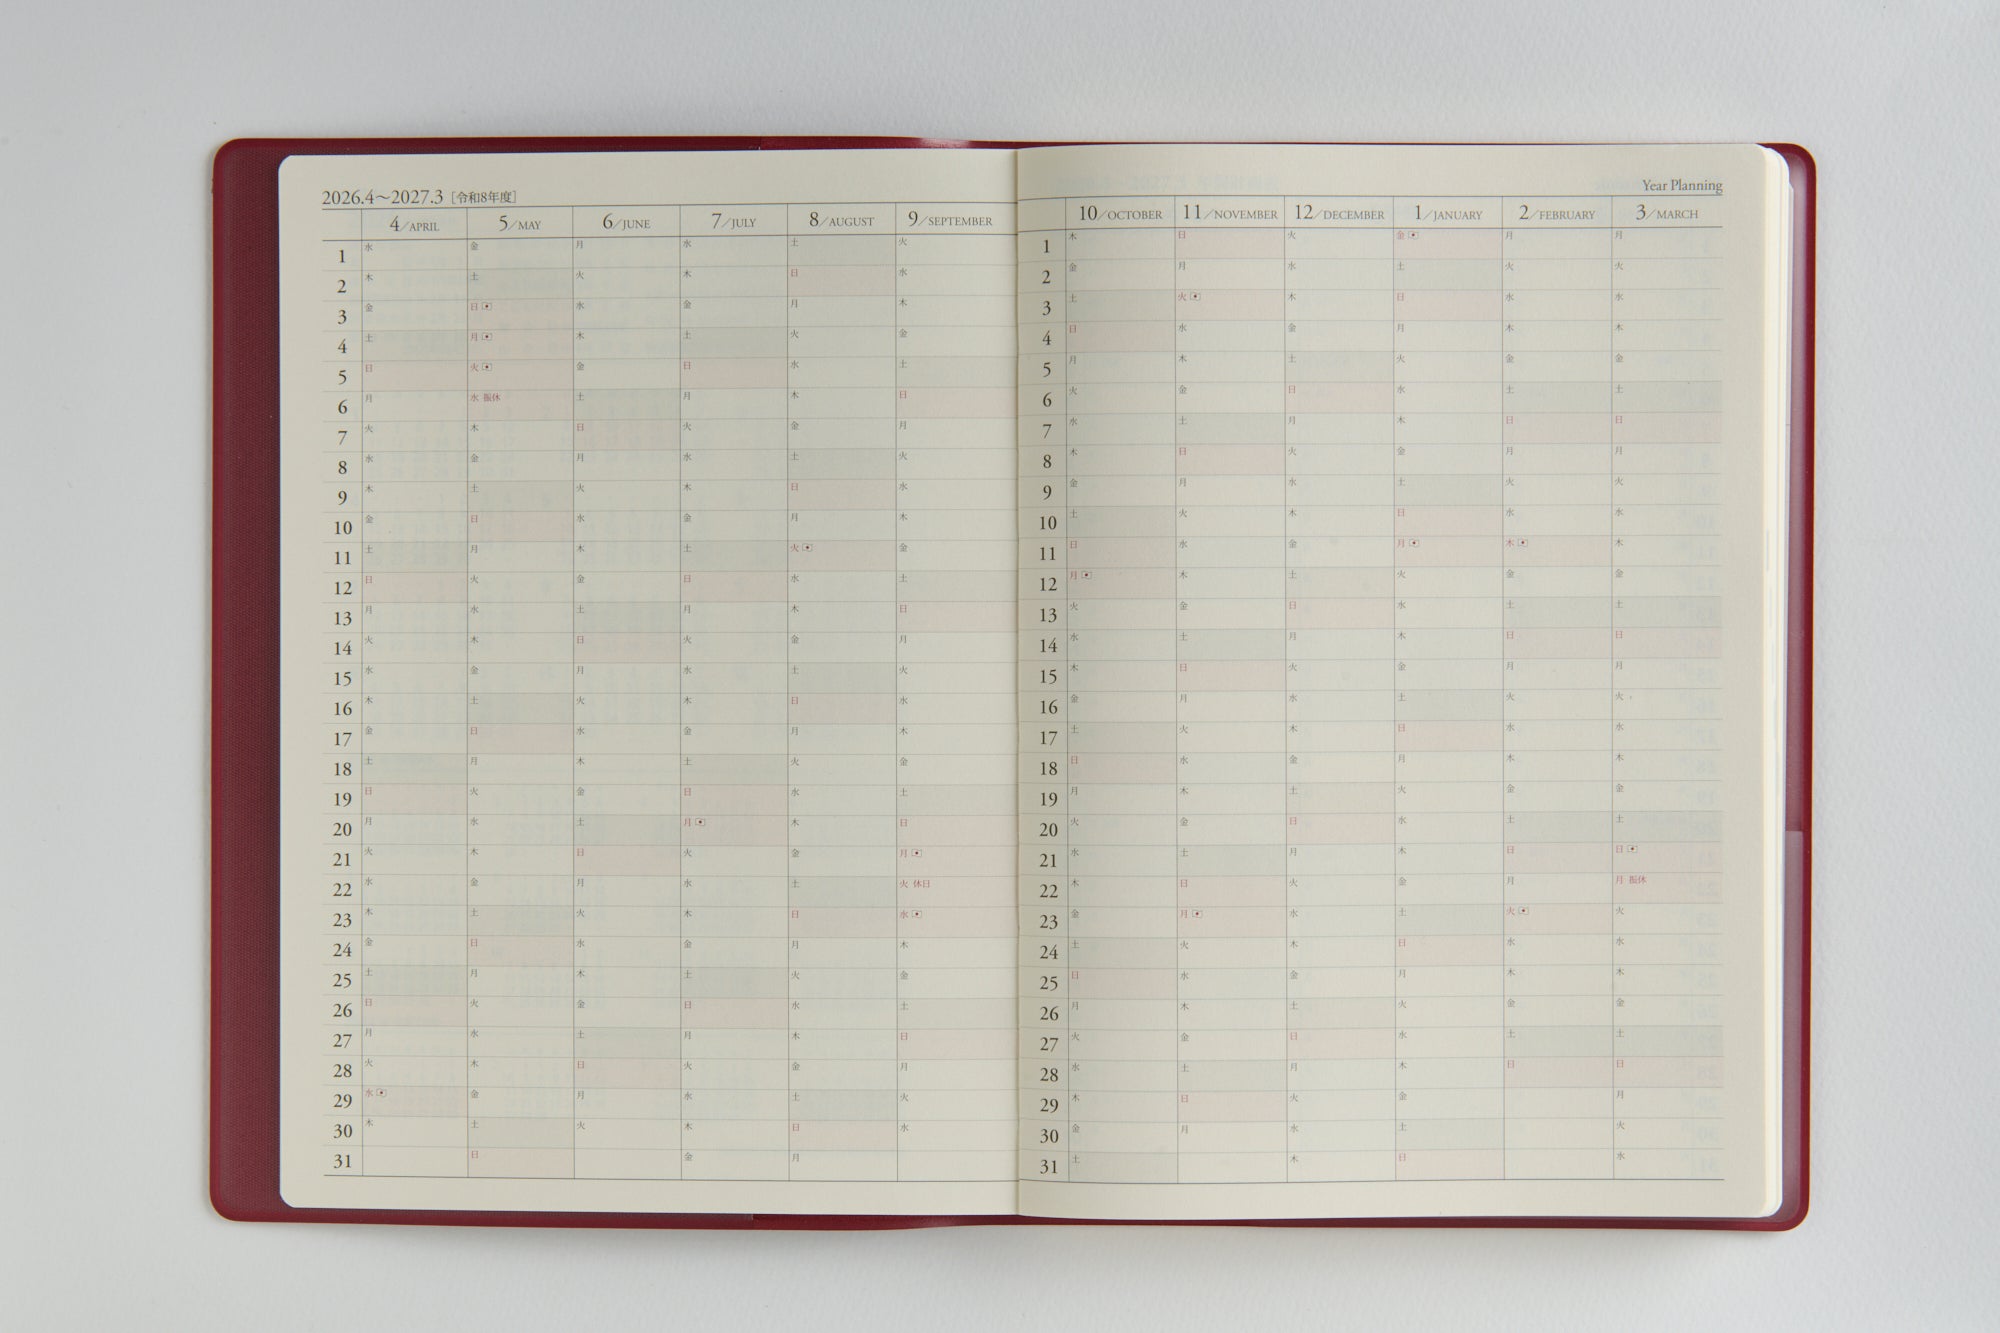 2026.4〜2027.3［令和8年度］
Year Planning
4／APRIL 5／MAY 6／JUNE 7／JULY 8／AUGUST 9／SEPTEMBER 10／OCTOBER 11／NOVEMBER 12／DECEMBER 1／JANUARY 2／FEBRUARY 3／MARCH
1 水 金 月 水 土 火 1 木 日 火 金 月 月
2 木 土 火 木 日 水 2 金 月 水 土 火 火
3 金 日 水 金 月 木 3 土 火 木 日 水 水
4 土 月 木 土 火 金 4 日 水 金 月 木 木
5 日 火 金 日 水 土 5 月 木 土 火 金 金
6 月 水 振休 土 月 木 日 6 火 金 日 水 土 土
7 火 木 日 火 金 月 7 水 土 月 木 日 日
8 水 金 月 水 土 火 8 木 日 火 金 月 月
9 木 土 火 木 日 水 9 金 月 水 土 火 火
10 金 日 水 金 月 木 10 土 火 木 日 水 水
11 土 月 木 土 火 金 11 日 水 金 月 木 木
12 日 火 金 日 水 土 12 月 木 土 火 金 金
13 月 水 土 月 木 日 13 火 金 日 水 土 土
14 火 木 日 火 金 月 14 水 土 月 木 日 日
15 水 金 月 水 土 火 15 木 日 火 金 月 月
16 木 土 火 木 日 水 16 金 月 水 土 火 火
17 金 日 水 金 月 木 17 土 火 木 日 水 水
18 土 月 木 土 火 金 18 日 水 金 月 木 木
19 日 火 金 日 水 土 19 月 木 土 火 金 金
20 月 水 土 月 木 日 20 火 金 日 水 土 土
21 火 木 日 火 金 月 21 水 土 月 木 日 日
22 水 金 月 水 土 火 休日 22 木 日 火 金 月 月 振休
23 木 土 火 木 日 水 23 金 月 水 土 火 火
24 金 日 水 金 月 木 24 土 火 木 日 水 水
25 土 月 木 土 火 金 25 日 水 金 月 木 木
26 日 火 金 日 水 土 26 月 木 土 火 金 金
27 月 水 土 月 木 日 27 火 金 日 水 土 土
28 火 木 日 火 金 月 28 水 土 月 木 日 日
29 水 金 月 水 土 火 29 木 日 火 金 月
30 木 土 火 木 日 水 30 金 月 水 土 火
31 日 金 月 31 土 木 日 水